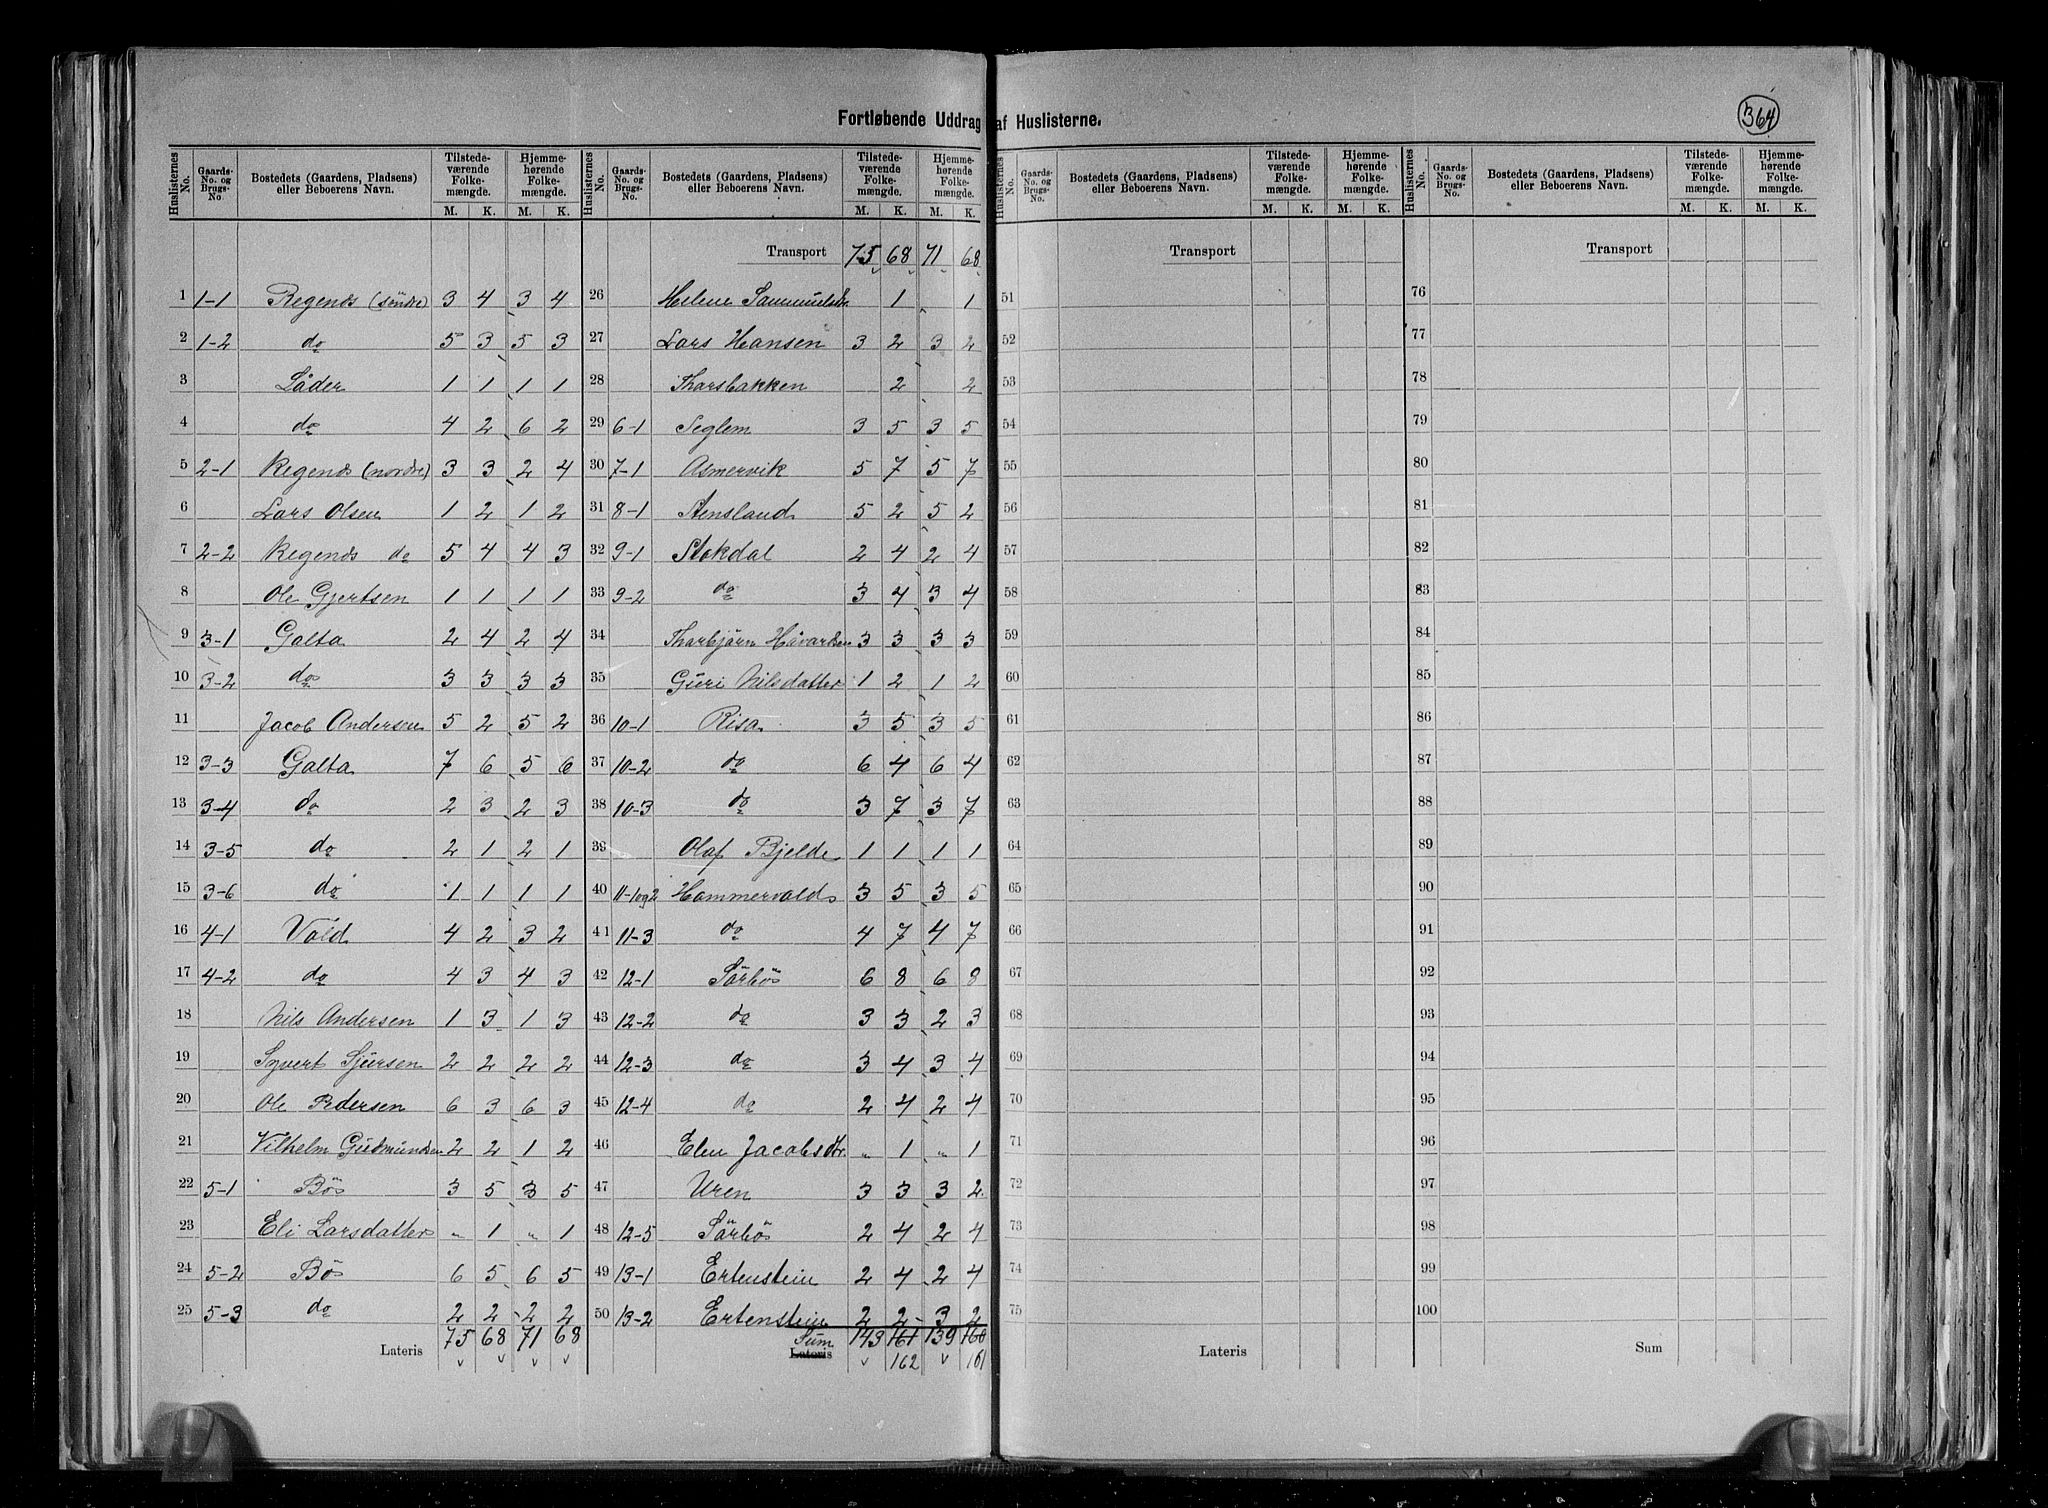 364
Fortløbende Uddrag af Huslisterne.
Huslisternes No. | Gaards-No. og Brugs-No. | Bostedets (Gaardens, Pladsens) eller Beboerens Navn. | Tilstede-værende Folke-mængde. M. K. | Hjemme-hørende Folke-mængde. M. K.
1 1-1 Regenæs (søndre) 3 4 3 4
2 1-2 do 5 3 5 3
3 Låder 1 1 1 1
4 do 4 2 6 2
5 2-1 Regenæs (nordre) 3 3 2 4
6 Lars Olsen 1 2 1 2
7 2-2 Regenæs do 5 4 4 3
8 Ole Gjertsen 1 1 1 1
9 3-1 Galta 2 4 2 4
10 3-2 do 3 3 3 3
11 Jacob Andersen 5 2 5 2
12 3-3 Galta 7 6 5 6
13 3-4 do 2 3 2 3
14 3-5 do 2 1 2 1
15 3-6 do 1 1 1 1
16 4-1 Vold 4 2 3 2
17 4-2 do 4 3 4 3
18 Nils Andersen 1 3 1 3
19 Syvert Sjursen 2 2 2 2
20 Ole Pedersen 6 3 6 3
21 Vilhelm Gudmundsen 2 2 1 2
22 5-1 Bös 3 5 3 5
23 Eli Larsdatter " 1 " 1
24 5-2 Bös 6 5 6 5
25 5-3 do 2 2 2 2
Lateris 75 68 71 68
Huslisternes No. | Gaards-No. og Brugs-No. | Bostedets (Gaardens, Pladsens) eller Beboerens Navn. | Tilstede-værende Folke-mængde. M. K. | Hjemme-hørende Folke-mængde. M. K.
Transport 75 68 71 68
26 Helene Sammuelsdtr. 1 1
27 Lars Hansen 3 2 3 2
28 Tharsbakken 2 2
29 6-1 Seglem 3 5 3 5
30 7-1 Asmervik 5 7 5 7
31 8-1 Stensland 5 2 5 2
32 9-1 Stokdal 2 4 2 4
33 9-2 do 3 4 3 4
34 Tharbjørn Håvardsen 3 3 3 3
35 Guri Nilsdatter 1 2 1 2
36 10-1 Risa 3 5 3 5
37 10-2 do 6 4 6 4
38 10-3 do 3 7 3 7
39 Olaf Bjelde 1 1 1 1
40 11-1og2 Hammervold 3 5 3 5
41 11-3 do 4 7 4 7
42 12-1 Sörbös 6 8 6 8
43 12-2 do 3 3 2 3
44 12-3 do 3 4 3 4
45 12-4 do 2 4 2 4
46 Elen Jacobsdtr. " 1 " 1
47 Uren 3 3 3 2
48 12-5 Sörbös 2 4 2 4
49 13-1 Ertenstein 2 4 2 4
50 13-2 Ertenstein 2 2 3 2
Sum 143 161 139 160
Lateris 162 161
Huslisternes No. | Gaards-No. og Brugs-No. | Bostedets (Gaardens, Pladsens) eller Beboerens Navn. | Tilstede-værende Folke-mængde. M. K. | Hjemme-hørende Folke-mængde. M. K.
Transport
51
52
53
54
55
56
57
58
59
60
61
62
63
64
65
66
67
68
69
70
71
72
73
74
75
Lateris
Huslisternes No. | Gaards-No. og Brugs-No. | Bostedets (Gaardens, Pladsens) eller Beboerens Navn. | Tilstede-værende Folke-mængde. M. K. | Hjemme-hørende Folke-mængde. M. K.
Transport
76
77
78
79
80
81
82
83
84
85
86
87
88
89
90
91
92
93
94
95
96
97
98
99
100
Sum